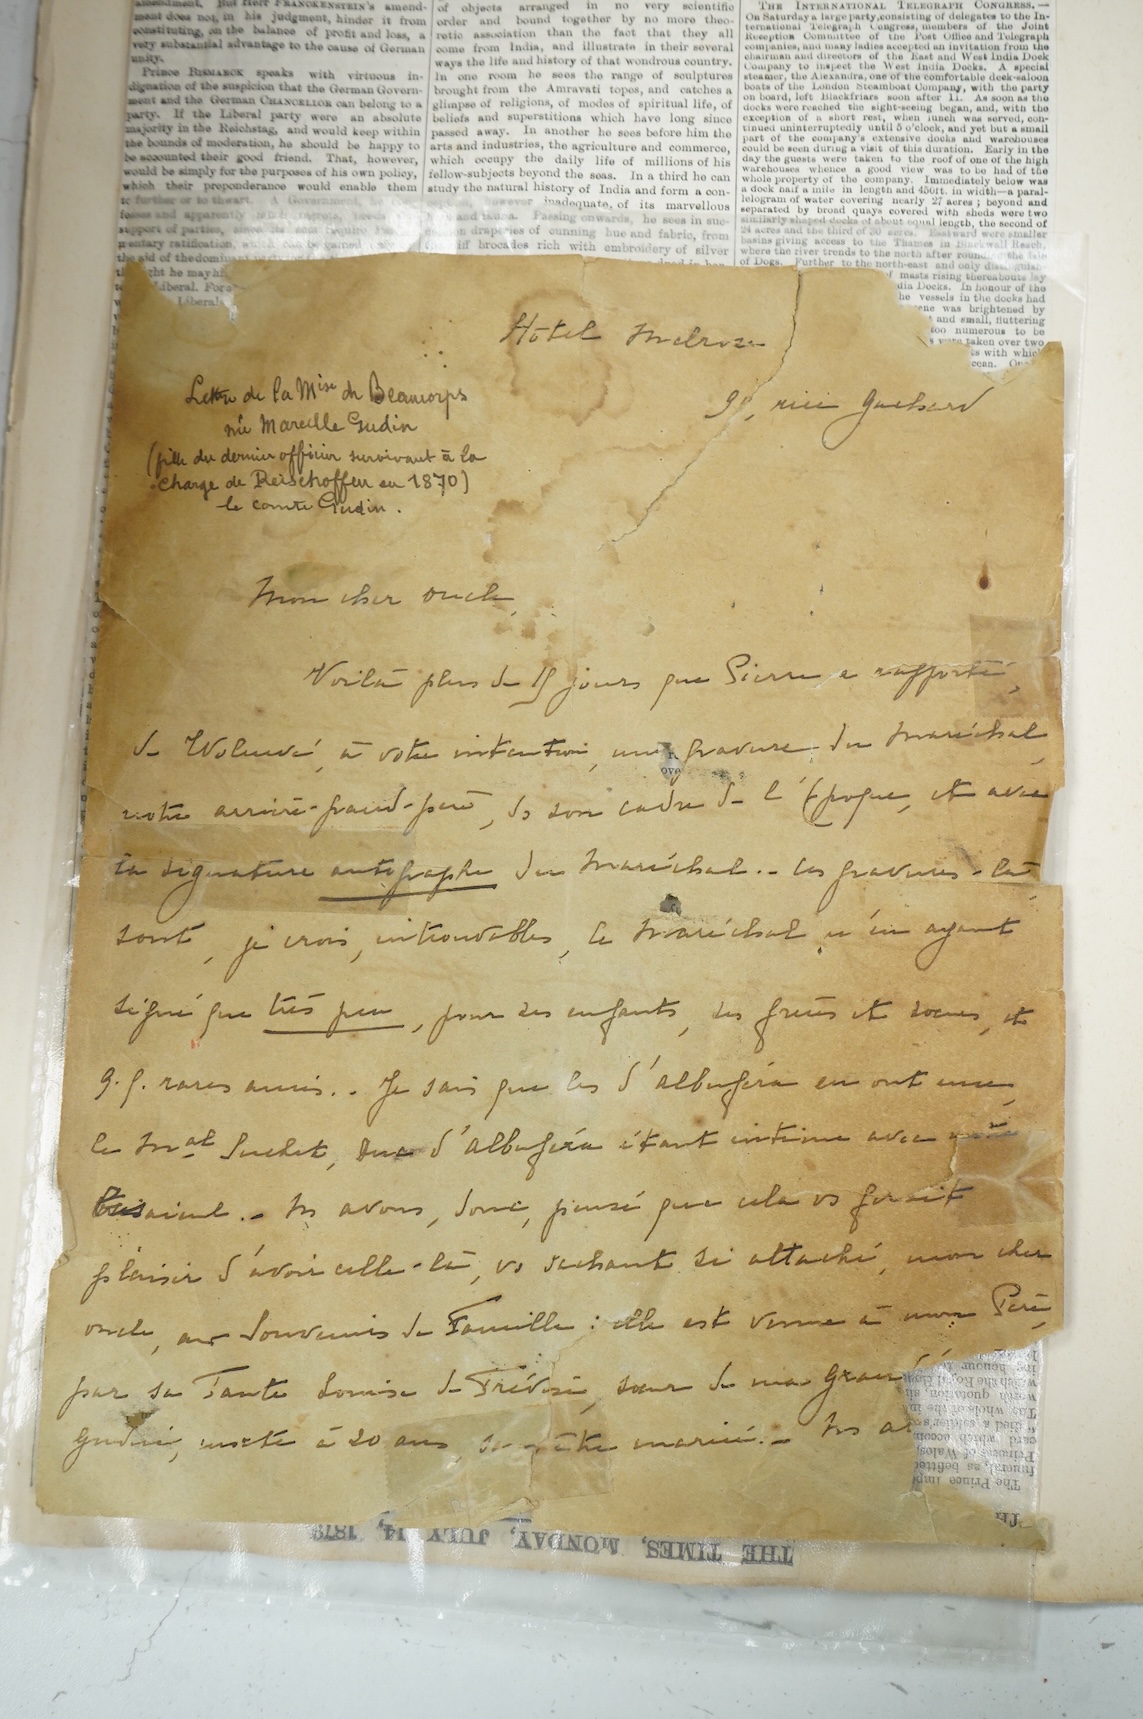 amendment. But Herr FRANCKENSTEIN'S amend-
ment does not, in his judgment, hinder it from
constituting, on the balance of profit and loss, a
very substantial advantage to the cause of German
unity.
Prince BISMARCK speaks with virtuous in-
dignation of the suspicion that the German Govern-
ment and the German CHANCELLOR can belong to a
party. If the Liberal party were an absolute
majority in the Reichstag, and would keep within
the bounds of moderation, he should be happy to
be accounted their good friend. That, however,
would be simply for the purposes of his own policy,
which their preponderance would enable them
of objects arranged in no very scientific
order and bound together by no more theo-
retic association than the fact that they all
come from India, and illustrate in their several
ways the life and history of that wondrous country.
In one room he sees the range of sculptures
brought from the Amravati topes, and catches a
glimpse of religions, of modes of spiritual life, of
beliefs and superstitions which have long since
passed away. In another he sees before him the
arts and industries, the agriculture and commerce,
which occupy the daily life of millions of his
fellow-subjects beyond the seas. In a third he can
study the natural history of India and form a con-
inadequate, of its marvellous
Passing onwards, he sees in suc-
draperies of cunning hue and fabric, from
brocades rich with embroidery of silver
THE INTERNATIONAL TELEGRAPH CONGRESS.—
On Saturday a large party, consisting of delegates to the In-
ternational Telegraph Congress, members of the Joint
Reception Committee of the Post Office and Telegraph
companies, and many ladies accepted an invitation from the
chairman and directors of the East and West India Dock
Company to inspect the West India Docks. A special
steamer, the Alexandra, one of the comfortable deck-saloon
boats of the London Steamboat Company, with the party
on board, left Blackfriars soon after 11. As soon as the
docks were reached the sight-seeing began, and, with the
exception of a short rest, when lunch was served, con-
tinued uninterruptedly until 5 o'clock, and yet but a small
part of the company's extensive docks and warehouses
could be seen during a visit of this duration. Early in the
day the guests were taken to the roof of one of the high
warehouses whence a good view was to be had of the
whole property of the company. Immediately below was
a dock half a mile in length and 450ft. in width—a paral-
lelogram of water covering nearly 27 acres; beyond and
separated by broad quays covered with sheds were two
similarly shaped docks of about equal length, the second of
24 acres and the third of 30 acres. Eastward were smaller
basins giving access to the Thames in Blackwall Reach,
where the river trends to the north after rounding the Isle
of Dogs. Further to the north-east and only distinguish-
masts rising thereabouts lay
India Docks. In honour of the
the vessels in the docks had
was brightened by
and small, fluttering
too numerous to be
were taken over two
with which
Hôtel Melrose
91, rue Guesard
Lettre de la Mise de Beaucorps
née Marcelle Gudin
(fille du dernier officier survivant à la
charge de Reischoffen en 1870)
le comte Gudin.
Mon cher oncle,
Voilà plus de 15 jours que Pierre a rapporté,
de Woluwé, à votre intention, une gravure du Maréchal,
notre arrière-grand-père, ds son cadre de l'Epoque, et avec
la signature autographe du Maréchal.- Ces gravures-là
sont, je crois, introuvables, le Maréchal n'en ayant
signé que très peu, pour ses enfants, ses frères et soeurs, et
q.q. rares amis.. Je sais que les d'Albuféra en ont une,
le Mal Suchet, Duc d'Albuféra étant intime avec
aïeul.- Ns avons, donc, pensé que cela vs ferait
plaisir d'avoir celle-là, vs sachant si attaché, mon cher
oncle, aux Souvenirs de Famille : elle est venue à mon Père,
par sa Tante Louise de Trévise, soeur de ma Grand
Gudin, morte à 20 ans, sans être mariée.- Ns
THE TIMES, MONDAY, JULY 14, 1879